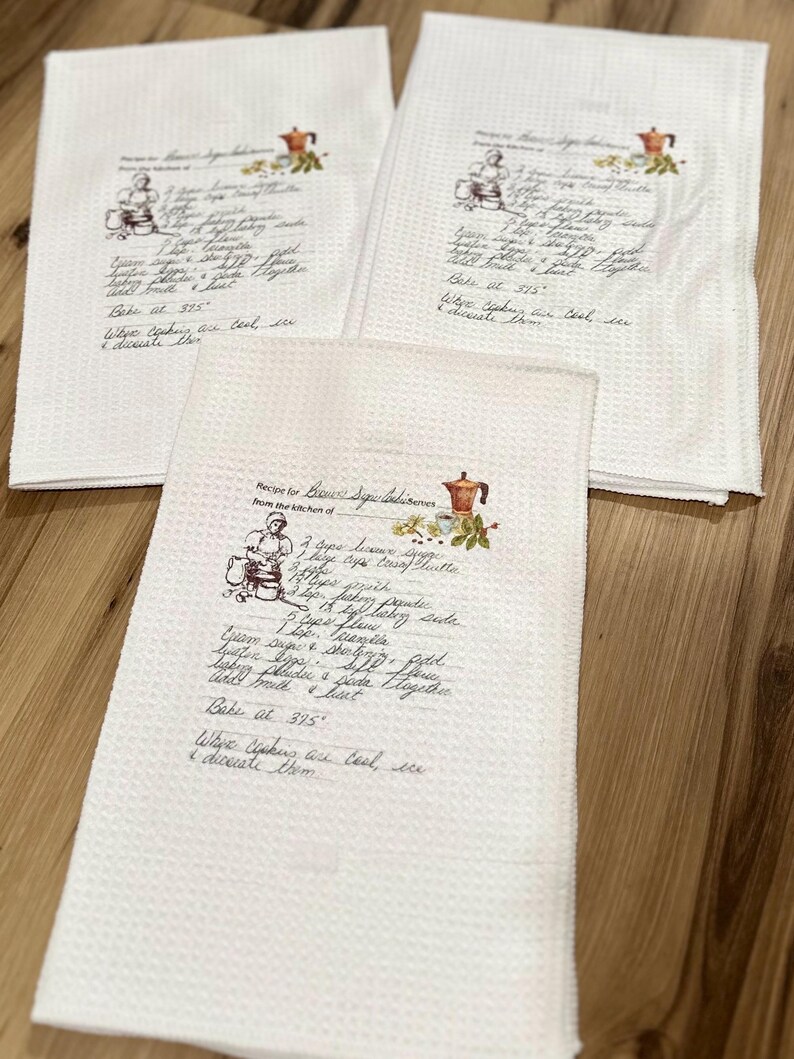 Recipe for Brown Sugar Cookies Serves
from the kitchen of
2 cups brown sugar
cups
eggs
cups milk
tsp. baking powder
tsp baking soda
5 cups flour
1 tsp. vanilla
Cream sugar & shortening, add
beaten eggs. Sift flour,
baking powder & soda together
add milk & last
Bake at 375°
When cookies are cool, ice
& decorate them
Recipe for Brown Sugar Cookies Serves
from the kitchen of
2 cups brown sugar
cups butter
eggs
cups milk
tsp. baking powder
tsp baking soda
5 cups flour
1 tsp. vanilla
Cream sugar & shortening, add
beaten eggs. Sift flour,
baking powder & soda together
add milk & last
Bake at 375°
When cookies are cool, ice
& decorate them
Recipe for Brown Sugar Cookies Serves
from the kitchen of
2 cups brown sugar
1 large cups crisco/butter
3 eggs
cups milk
2 tsp. baking powder
tsp baking soda
5 cups flour
1 tsp. vanilla
Cream sugar & shortening, add
beaten eggs. Sift flour,
baking powder & soda together
add milk & last
Bake at 375°
When cookies are cool, ice
& decorate them